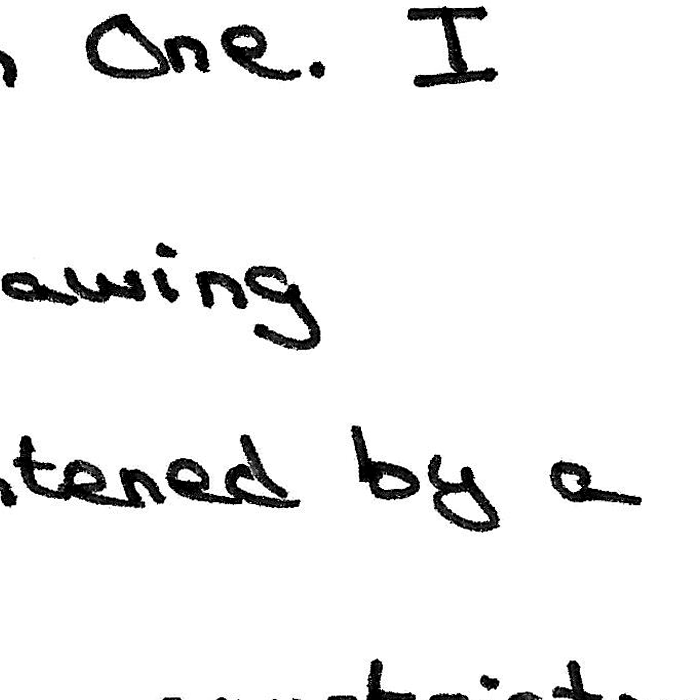 One. I
awing
tened by a